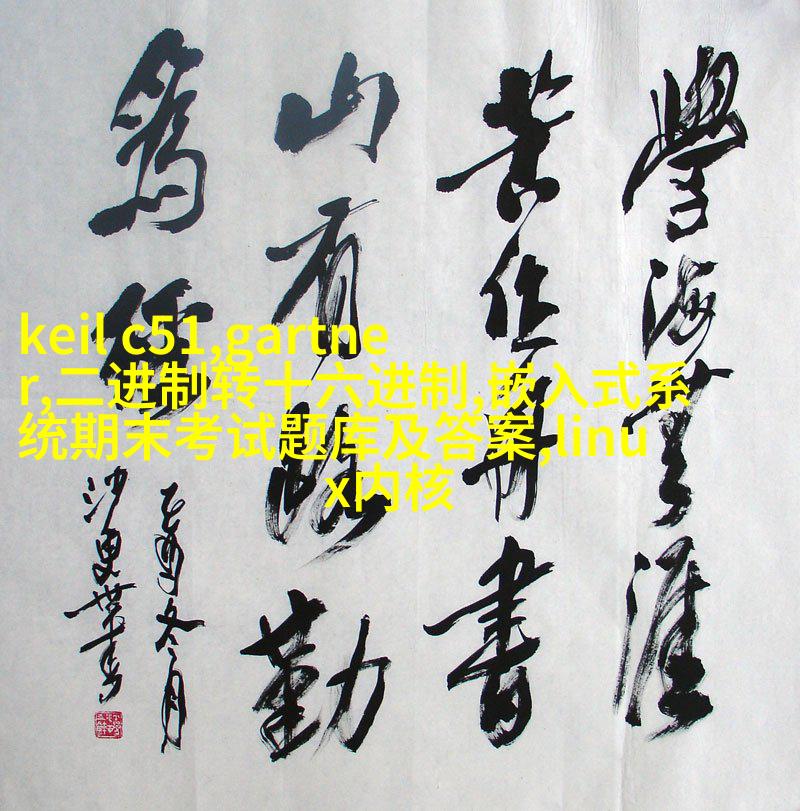 學海無涯
苦作舟書
山有路勤
為徑
乙酉冬月
keil c51,gartne
r,二进制转十六进制,嵌入式系
统期末考试题库及答案,linu
x内核